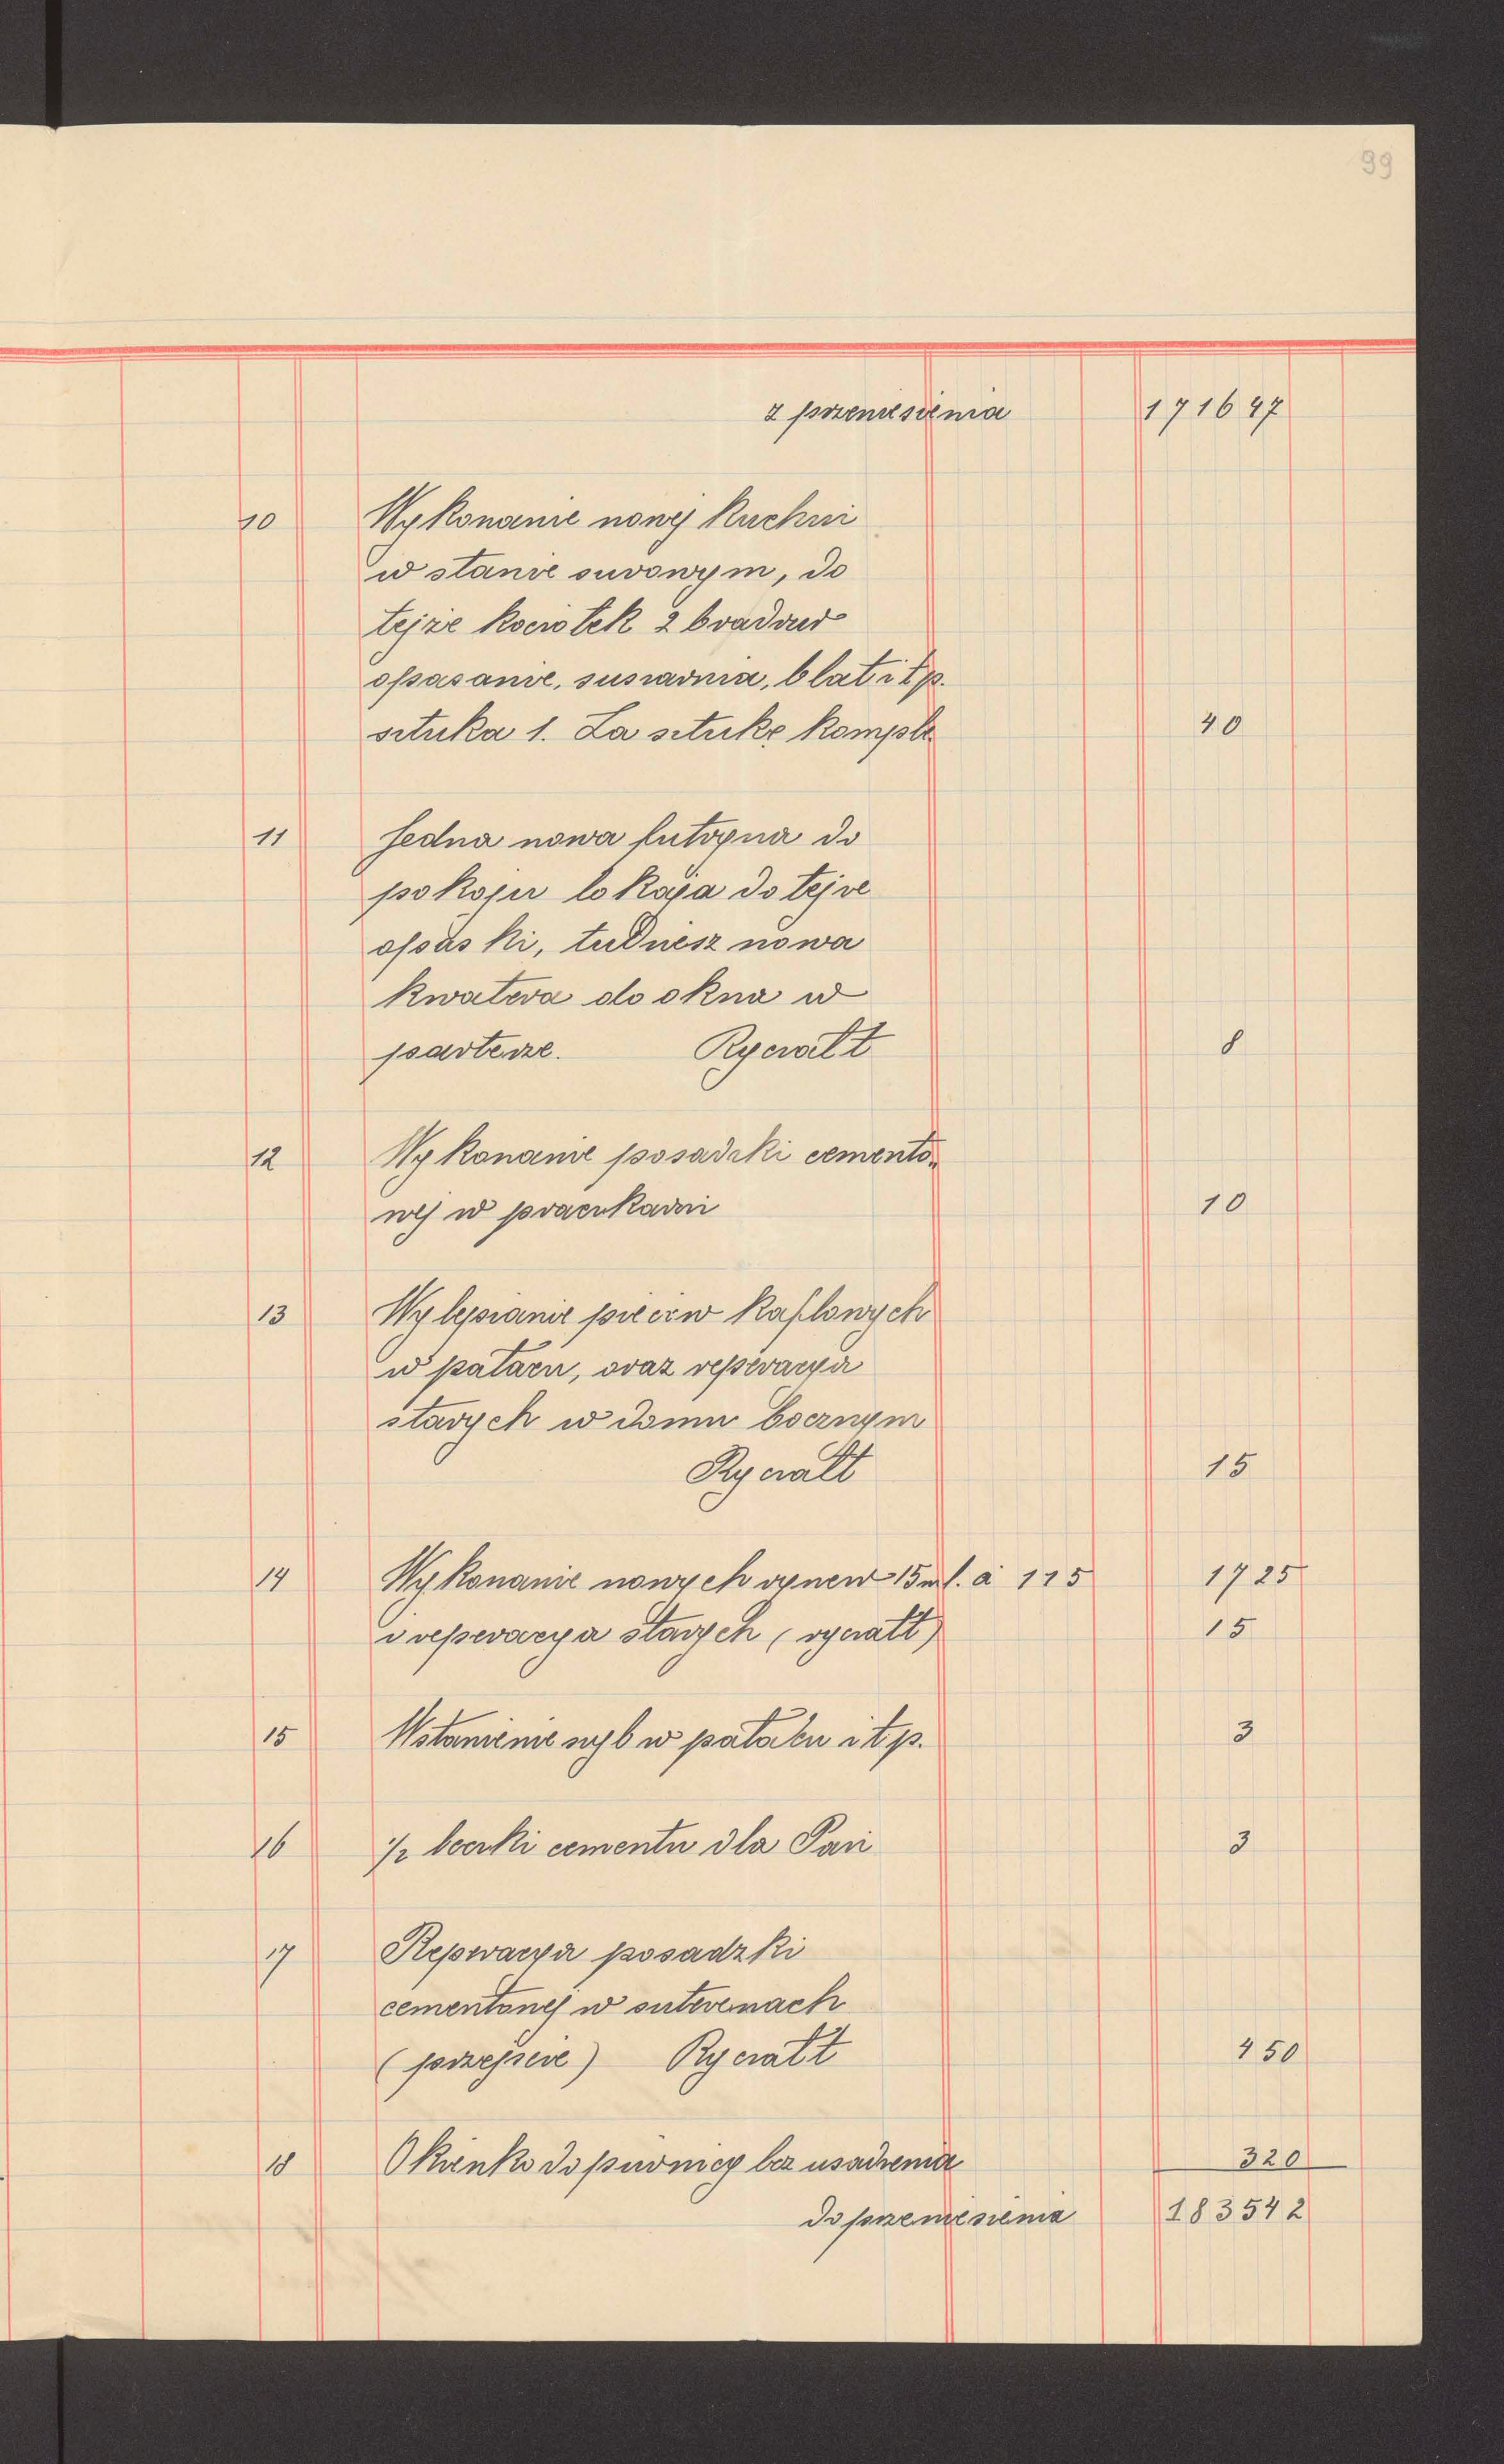 99
z przeniesienia 171647
10 Wykonanie nowej kuchni
w stanie surowym, do
tejże kociołek z bradrur
opasanie, susiarnia, blat i t p.
sztuka 1. Za sztukę komple. 40
11 Jedna nowa futryna do
pokoju lokaja do tejże
opaski, tudzież nowa
kwatera do okna w
parterze. Ryczałt 8
12 Wykonanie posadzki cemento-
wej w praczkarni 10
13 Wylepianie pieców kaflowych
w pałacu, oraz reperacya
starych w domu bocznym
Ryczałt 15
14 Wykonanie nowych rynew 15 ml. à 115 1725
i reperacya starych (ryczałt) 15
15 Wstawienie szyb w pałacu i t p. 3
16 1/2 beczki cementu dla Pani 3
17 Reperacya posadzki
cementowej w suterenach
(przejście) Ryczałt 450
18 Okienko do piwnicy bez usadzenia 320
do przeniesienia 183542